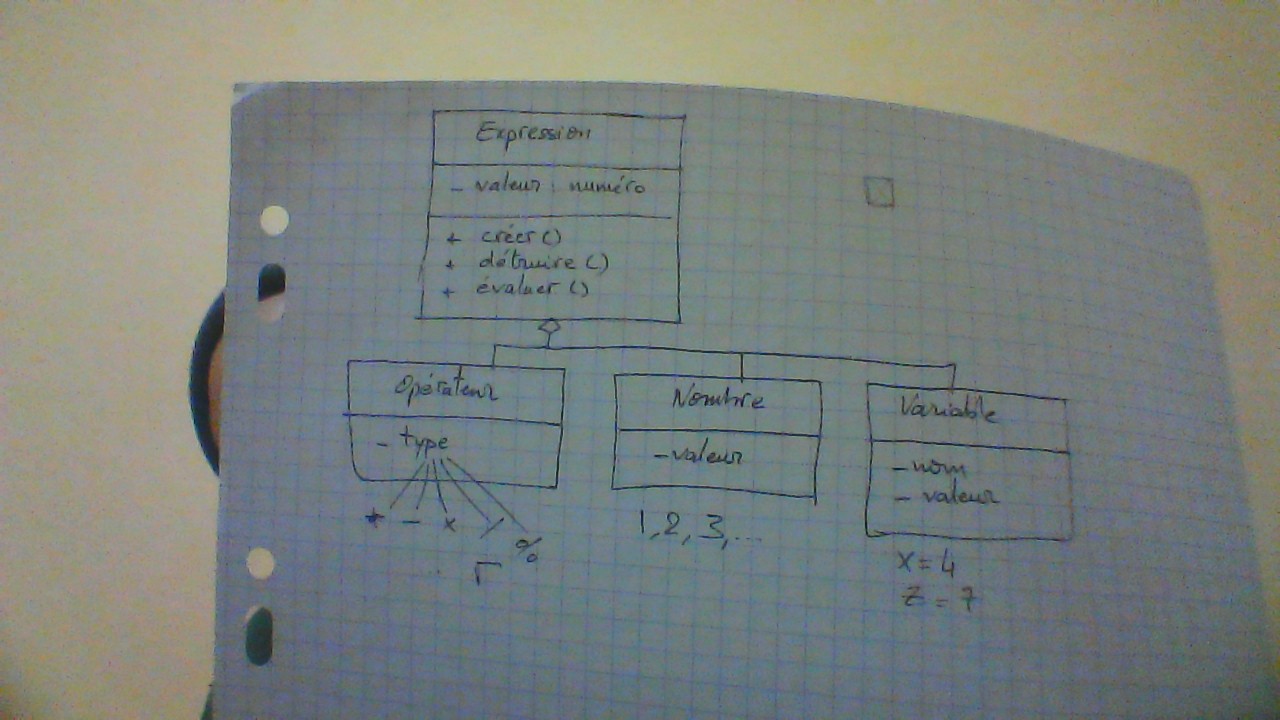 Expression
- valeur : numéro
+ créer ()
+ détruire ()
+ évaluer ()
Opérateur
- type
+ - x / %
Γ
Nombre
- valeur
1, 2, 3, ...
Variable
- nom
- valeur
x = 4
z = 7